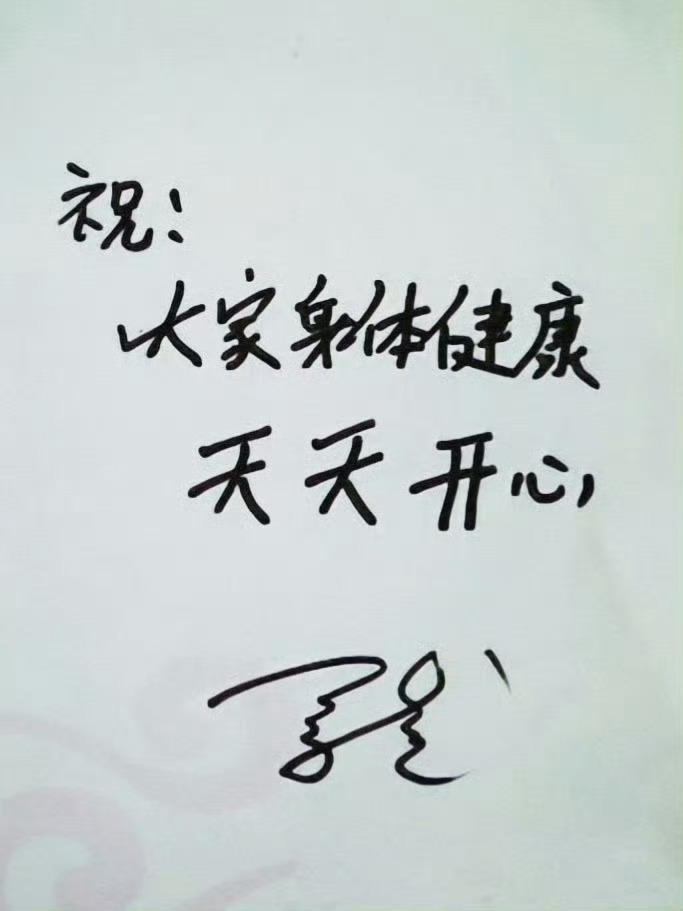 祝：
大家身体健康
天天开心